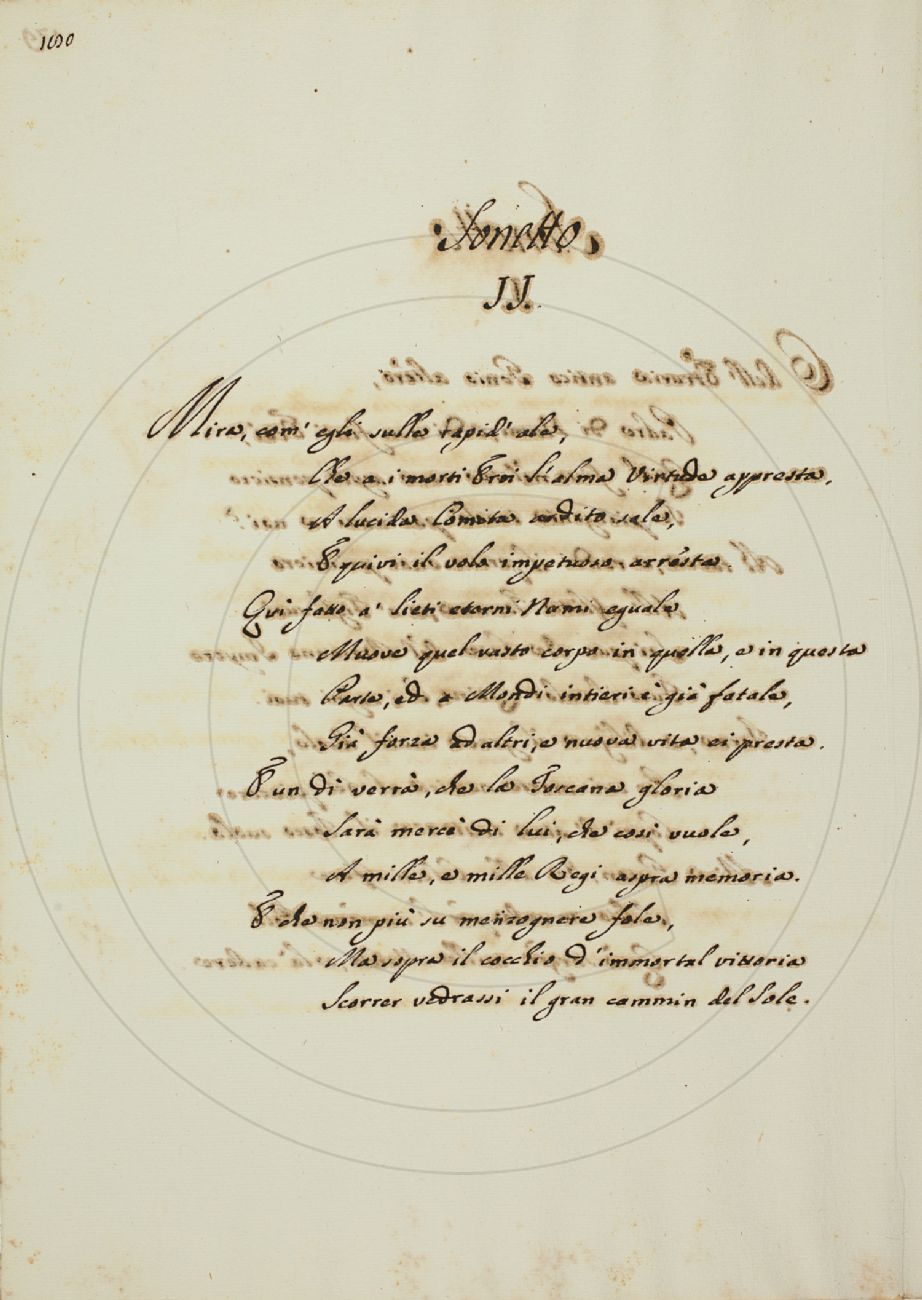 1690
Sonetto
IV.
Mira, com' egli sulle rapid' ale,
Che a i morti Eroi l'alma Virtude appresta,
A lucida Cometa ardito sale,
E quivi il volo impetuoso arresta.
Quì fatto a' lieti eterni Numi eguale
Muove quel vasto corpo in quella, e in questa
Parte, ed a Mondi intieri è già fatale,
Già forza ad altri, e nuova vita ei presta.
E un dì verrà, che la Toscana gloria
Sarà mercè di lui, che così vuole,
A mille, e mille Regi aspra memoria.
E che non più su menzognere fole,
Ma sopra il cocchio d'immortal vittoria
Scorrer vedrassi il gran cammin del Sole.